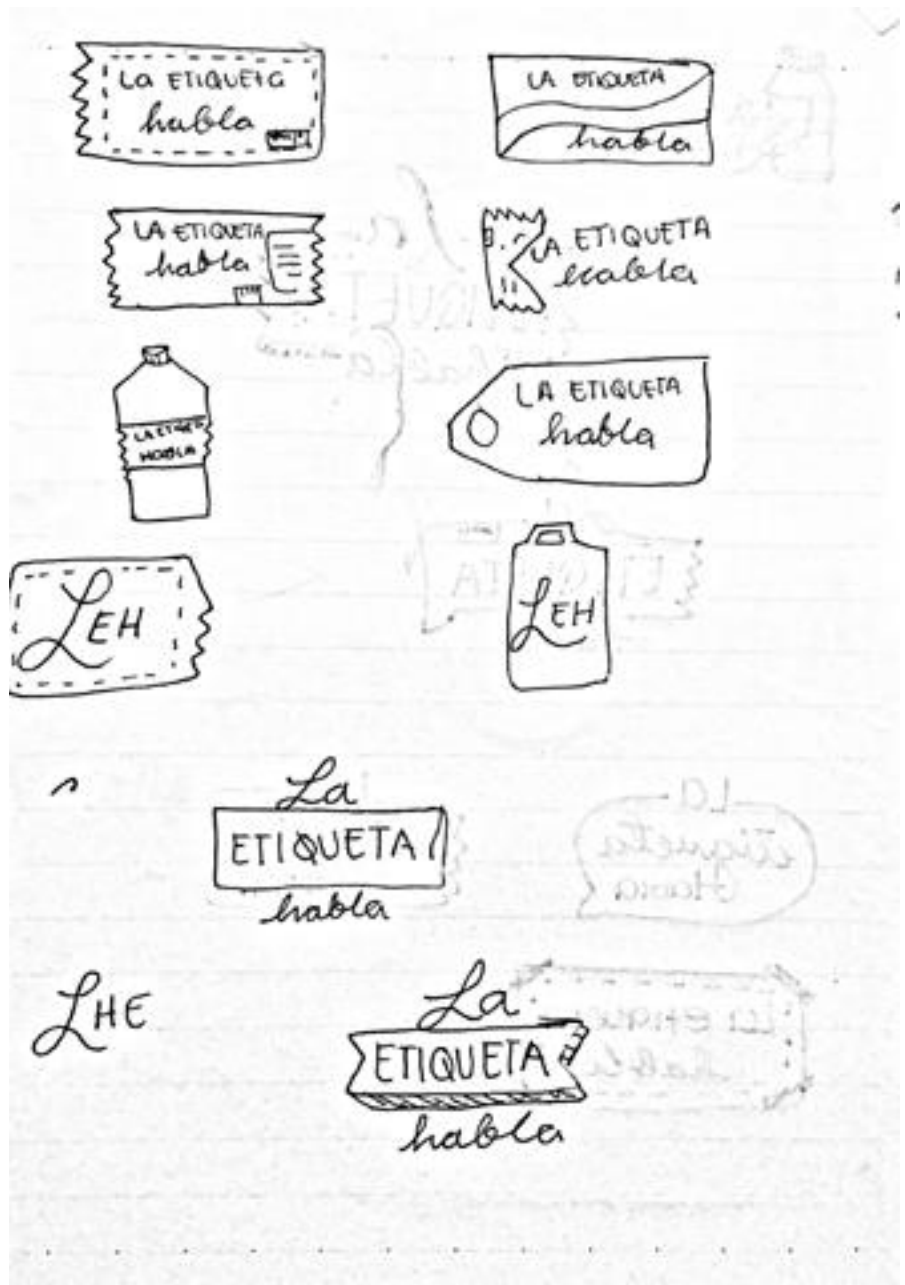 La ETIQUETa
habla
LA ETIQUETA
habla
LA ETIQUETA
habla
LA ETIQUETA
habla
LA ETIQUETA
habla
LEH
LEH
La
ETIQUETA
habla
LHE
La
ETIQUETA
habla